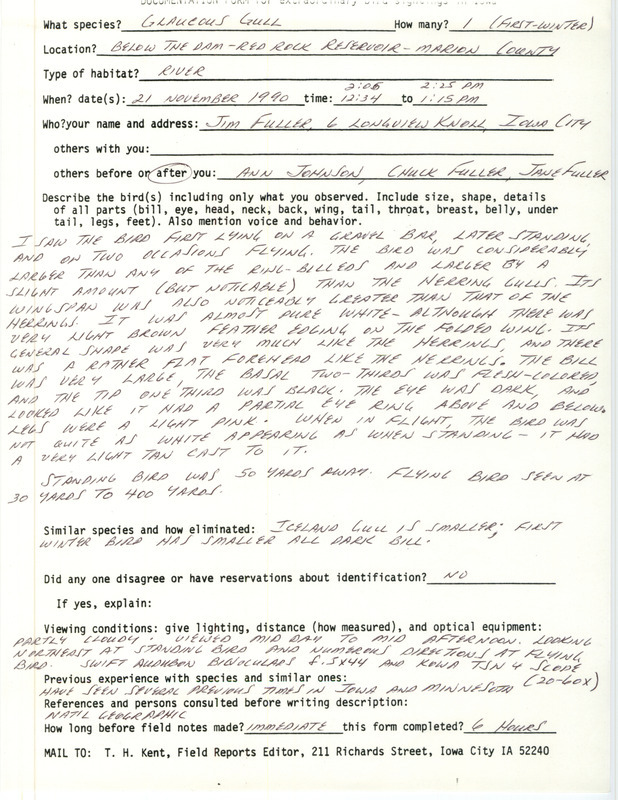 DOCUMENTATION FORM for extraordinary bird sightings in Iowa
What species? GLAUCOUS GULL How many? 1 (FIRST-WINTER)
Location? BELOW THE DAM - RED ROCK RESERVOIR - MARION COUNTY
Type of habitat? RIVER
2:05 2:25 PM
When? date(s): 21 NOVEMBER 1990 time: 12:34 to 1:15 PM
Who?your name and address: JIM FULLER, 6 LONGVIEW KNOLL, IOWA CITY
others with you:
others before or after you: ANN JOHNSON, CHUCK FULLER, JANE FULLER
Describe the bird(s) including only what you observed. Include size, shape, details
of all parts (bill, eye, head, neck, back, wing, tail, throat, breast, belly, under
tail, legs, feet). Also mention voice and behavior.
I SAW THE BIRD FIRST LYING ON A GRAVEL BAR, LATER STANDING,
AND ON TWO OCCASIONS FLYING. THE BIRD WAS CONSIDERABLY
LARGER THAN ANY OF THE RING-BILLEDS AND LARGER BY A
SLIGHT AMOUNT (BUT NOTICABLE) THAN THE HERRING GULLS. ITS
WINGSPAN WAS ALSO NOTICEABLY GREATER THAN THAT OF THE
HERRINGS. IT WAS ALMOST PURE WHITE - ALTHOUGH THERE WAS
VERY LIGHT BROWN FEATHER EDGING ON THE FOLDED WING. ITS
GENERAL SHAPE WAS VERY MUCH LIKE THE HERRINGS, AND THERE
WAS A RATHER FLAT FOREHEAD LIKE THE HERRINGS. THE BILL
WAS VERY LARGE, THE BASAL TWO-THIRDS WAS FLESH-COLORED,
AND THE TIP ONE THIRD WAS BLACK. THE EYE WAS DARK, AND
LOOKED LIKE IT HAD A PARTIAL EYE RING ABOVE AND BELOW.
LEGS WERE A LIGHT PINK. WHEN IN FLIGHT, THE BIRD WAS
NOT QUITE AS WHITE APPEARING AS WHEN STANDING - IT HAD
A VERY LIGHT TAN CAST TO IT.
STANDING BIRD WAS 50 YARDS AWAY. FLYING BIRD SEEN AT
30 YARDS TO 400 YARDS.
Similar species and how eliminated: ICELAND GULL IS SMALLER; FIRST
WINTER BIRD HAS SMALLER ALL DARK BILL.
Did any one disagree or have reservations about identification? NO
If yes, explain:
Viewing conditions: give lighting, distance (how measured), and optical equipment:
PARTLY CLOUDY. VIEWED MID DAY TO MID AFTERNOON. LOOKING
NORTHEAST AT STANDING BIRD AND NUMEROUS DIRECTIONS AT FLYING
BIRD. SWIFT AUDUBON BINOCULARS 8.5X44 AND KOWA TSN 4 SCOPE
(20-60X)
Previous experience with species and similar ones:
HAVE SEEN SEVERAL PREVIOUS TIMES IN IOWA AND MINNESOTA
References and persons consulted before writing description:
NAT'L GEOGRAPHIC
How long before field notes made? IMMEDIATE this form completed? 6 HOURS
MAIL TO: T. H. Kent, Field Reports Editor, 211 Richards Street, Iowa City IA 52240